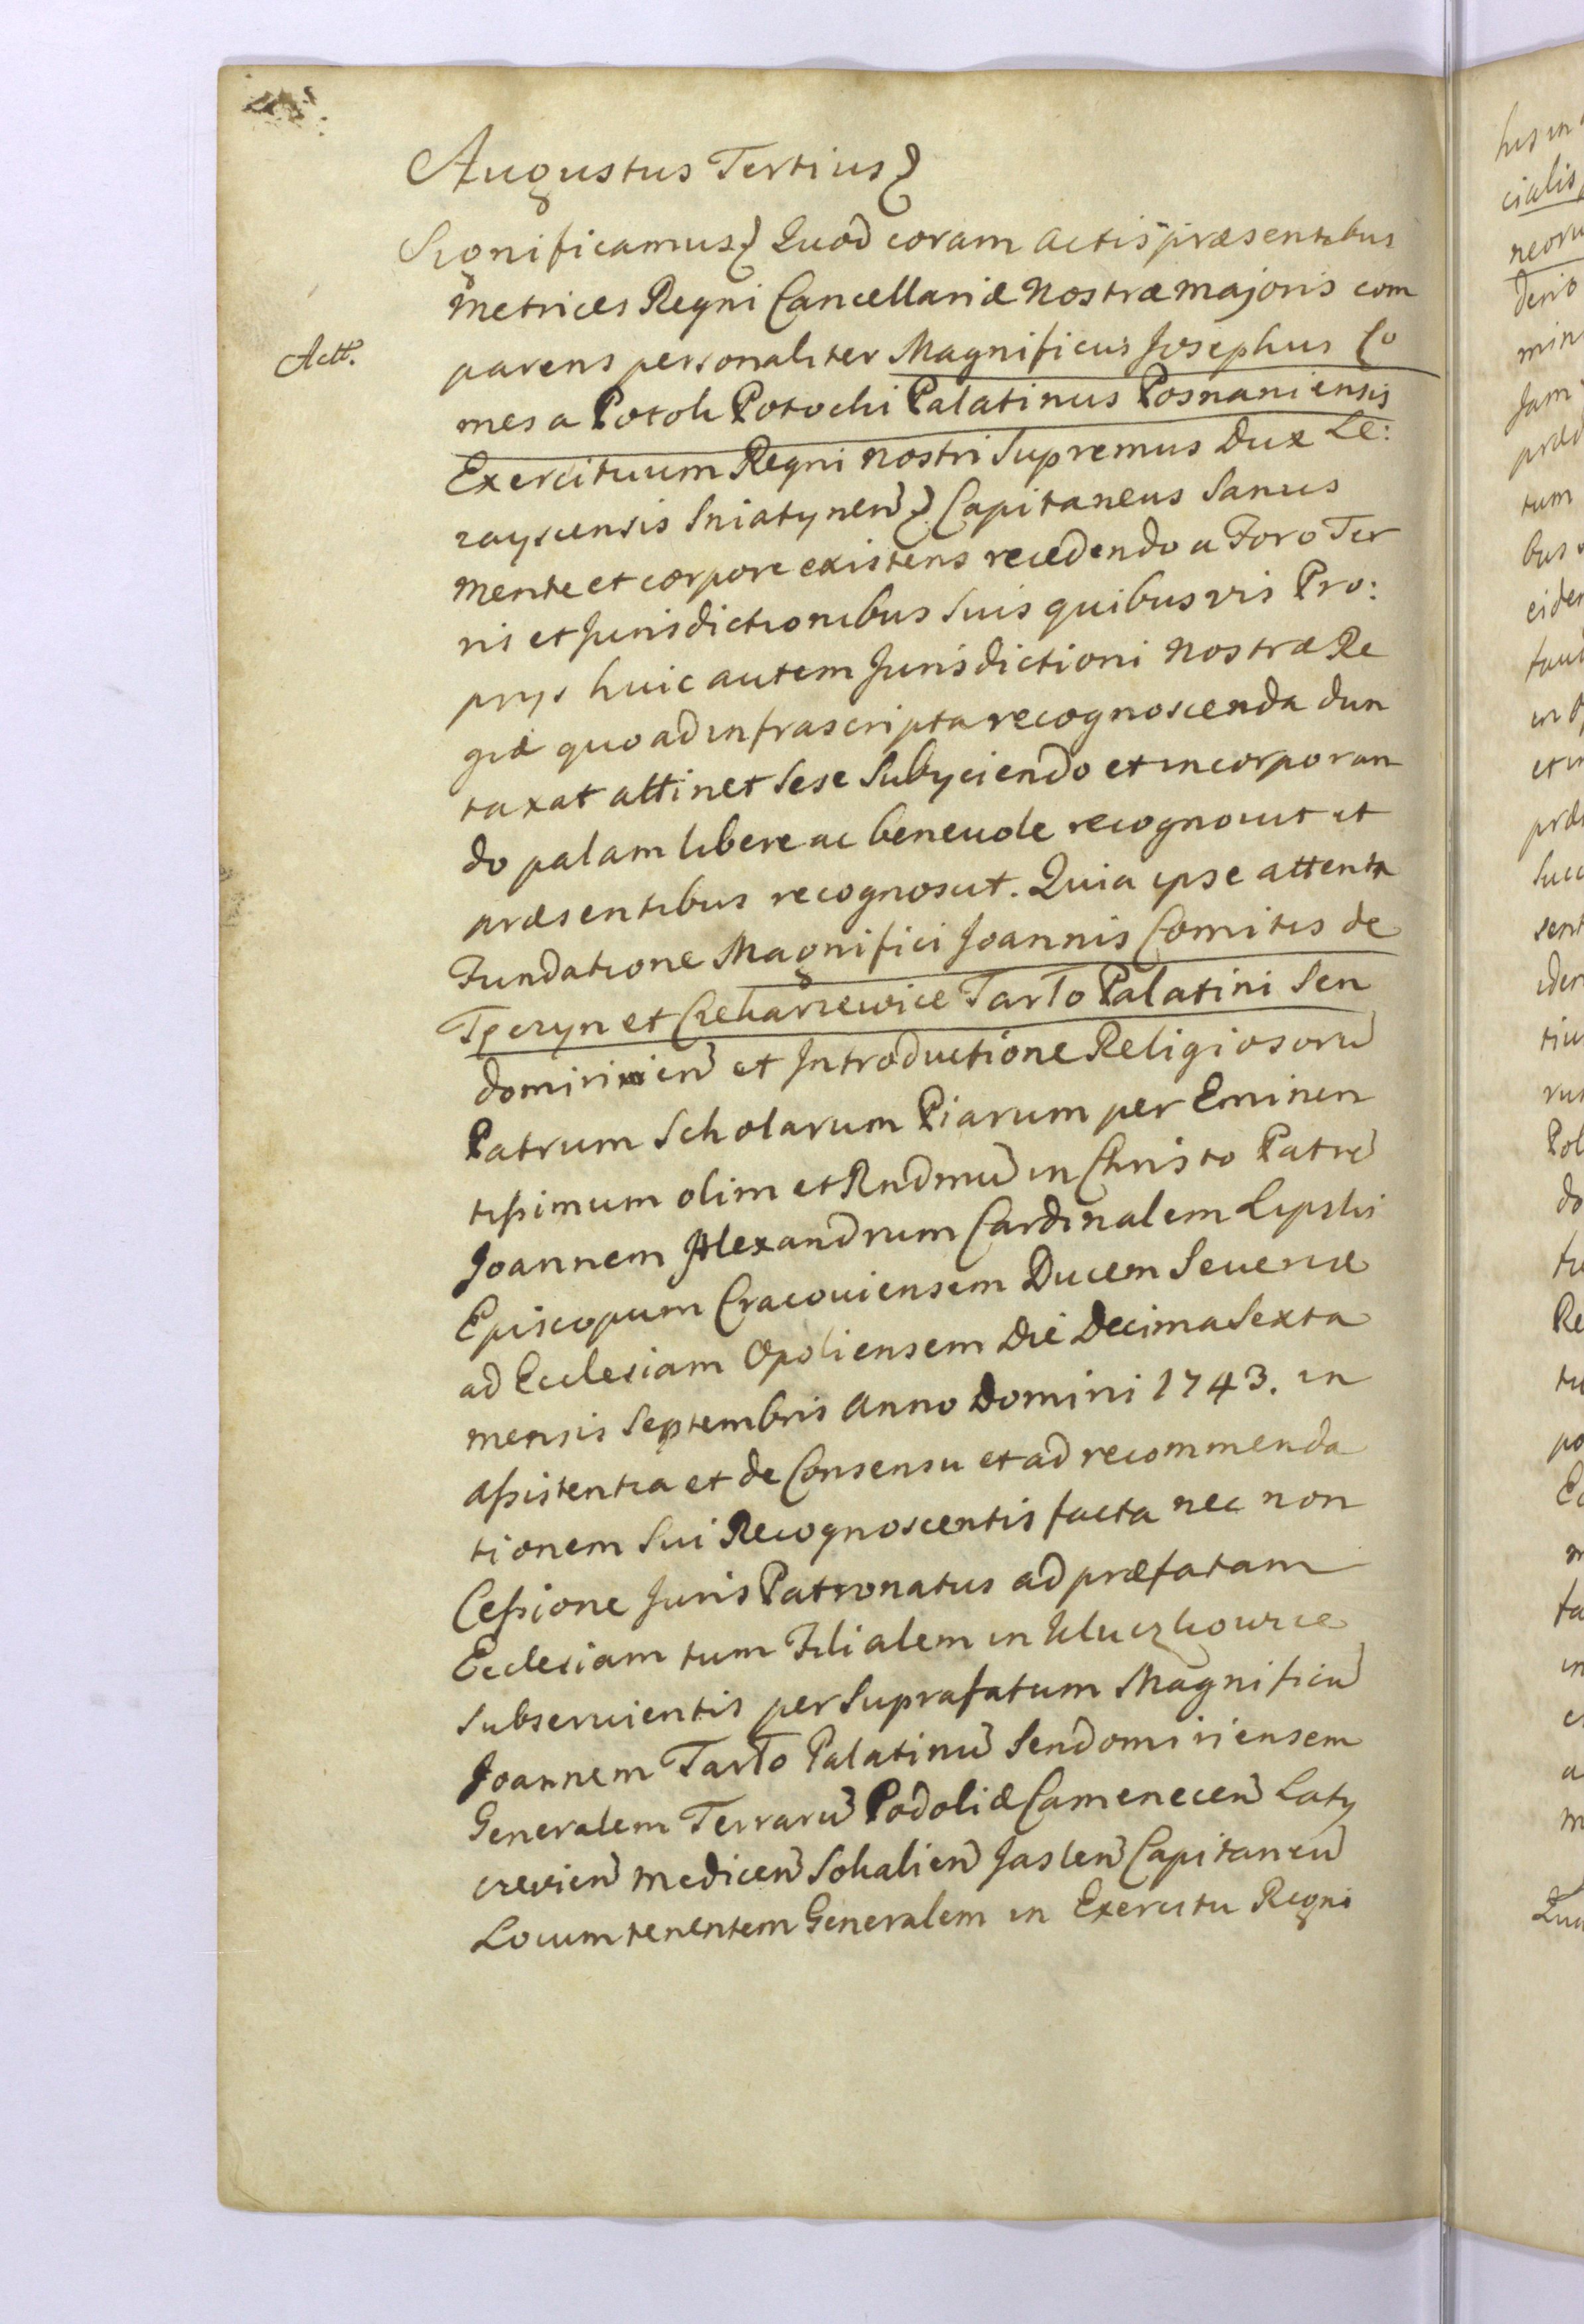 Augustus Tertius
Significamus Quod coram Actis præsentibus
Metrices Regni Cancellariæ Nostræ majoris com
Actt.
parens personaliter Magnificus Josephus Co
mes a Potok Potocki Palatinus Posnaniensis
Exercituum Regni nostri Supremus Dux Le:
zayscensis Sniatynen Capitaneus Sanus
Mente et corpore existens recedendo a Foro Ter
ris et Jurisdictionibus Suis quibusvis Pro:
prys huic autem Jurisdictioni Nostræ Re
giæ quo ad infrascripta recognoscenda dun
taxat attinet Sese Subyciendo et incorporan
do palam libere ac beneuole recognouit et
præsentibus recognoscit. Quia ipse attenta
Fundatione Magnifici Joannis Comitis de
Tęczyn et Czekarzewice Tarło Palatini Sen
domirien et Introductione Religiosoru
Patrum Scholarum Piarum per Eminen
tissimum olim et Rndmu in Christo Patre
Joannem Alexandrum Cardinalem Lipski
Episcopum Cracouiensem Ducem Seueriæ
ad Ecclesiam Opoliensem Die Decima Sexta
mensis Septembris Anno Domini 1743. in
assistentia et de Consensu et ad recommenda
tionem Sui Recognoscentis facta nec non
Cessione Juris Patronatus ad præfatam
Ecclesiam tum Filialem in Kluczkowice
Subseruientis per Suprafatum Magnificu
Joannem Tarło Palatinu Sendomiriensem
Generalem Terraru Podoliæ Camenecen Laty
czevien Medicen Sokalien Jaslen Capitaneu
Locumtenentem Generalem in Exercitu Regni